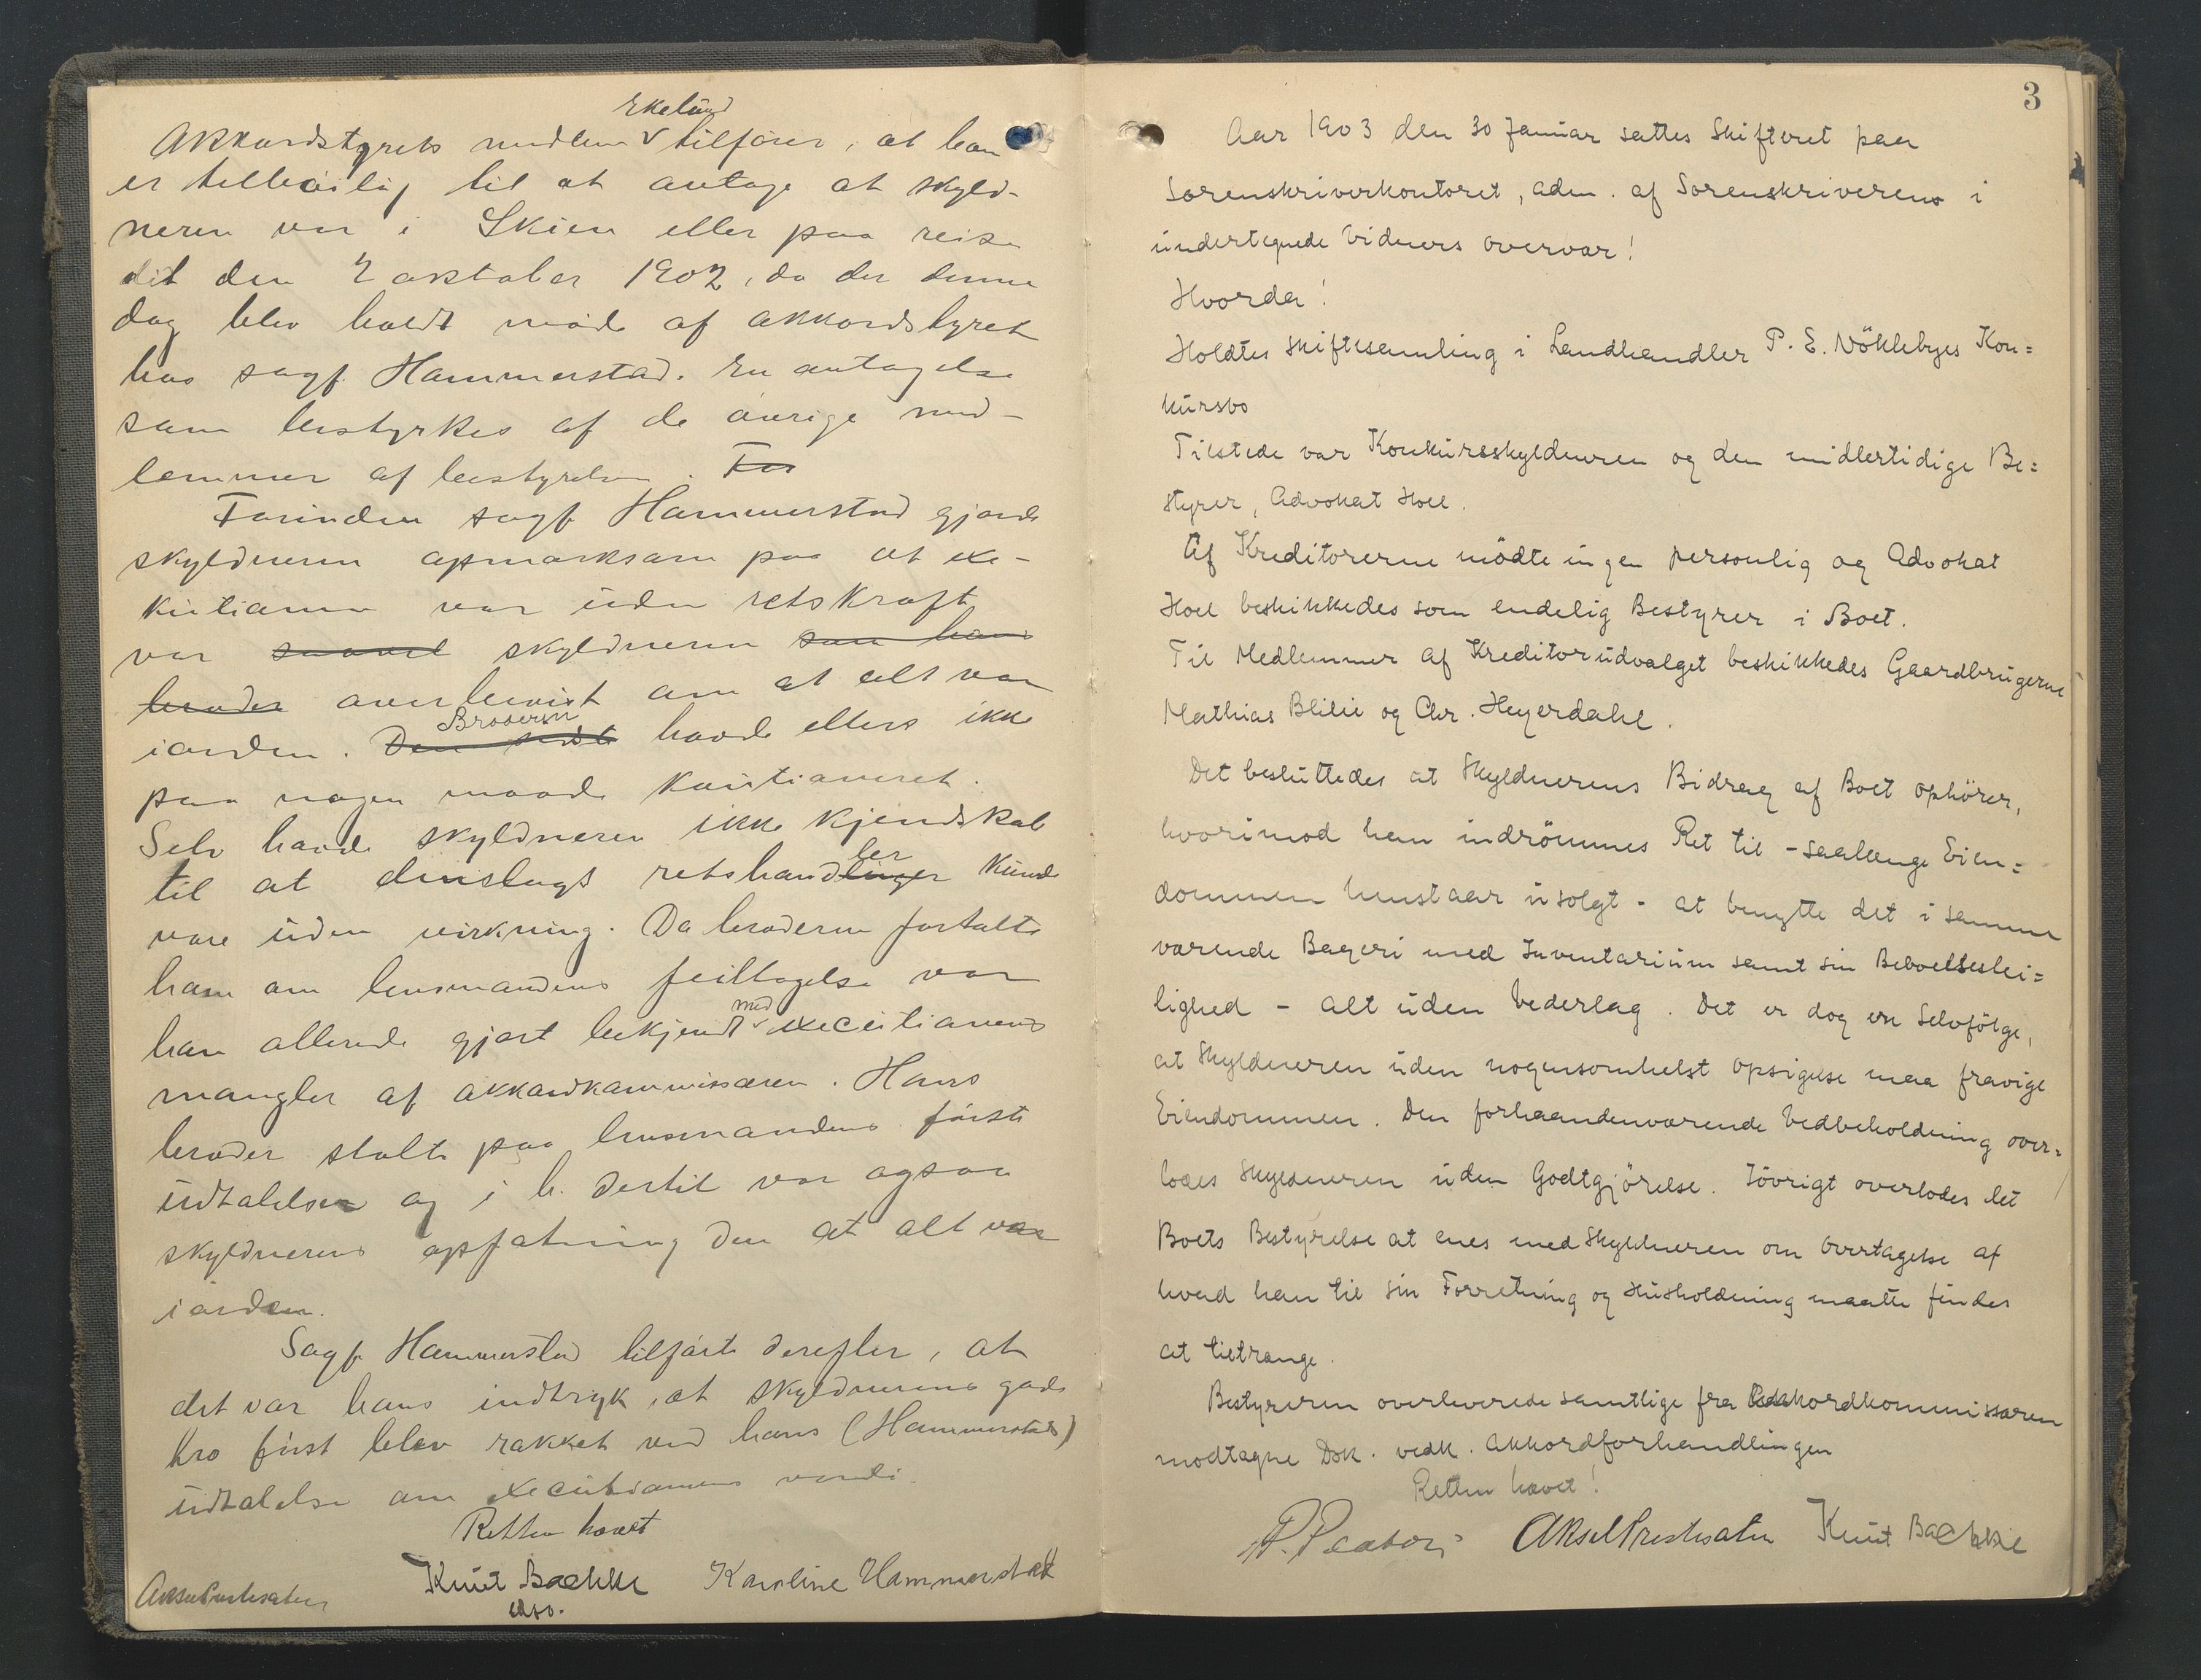 Ekelund
Akkordstyrets medlem v tilfører, at han
er tilbøilig til at antage at skyld-
neren var i Skien eller paa reise
dit den 2 oktober 1902, da der denne
dag blev holdt møde af akkordstyret
hos sagf. Hammerstad. En antagelse
som bestyrkes af de øvrige med-
lemmer af bestyrelsen. For
Forinden sagf Hammerstad gjorde
skyldneren opmærksom paa at exe-
kutionen var uden retskraft
var saavel skyldneren som hans
broder overbevist om at alt var
iorden. Den sidste Broderen havde ellers ikke
paa nogen maade kautioneret.
Selv havde skyldneren ikke kjendskab
til at denslags retshandlinger ler kunde
være uden virkning. Da broderen fortalte
ham om lensmandens feiltagelse var
han allerede gjort bekjendt med executionens
mangler af akkordkommissæren. Hans
broder stolte paa lensmandens første
udtalelser og i h. dertil var ogsaa
skyldnerens opfatning den at alt var
iorden.
Sagf. Hammerstad tilførte derefter, at
det var hans indtryk, at skyldnerens gode
tro først blev rokket ved hans (Hammerstads)
udtalelse om executionens værdi.
Retten hævet
Aksel Prestesater Knut Baekke Karoline Hammerstad
3
Aar 1903 den 30 Januar sattes Skifteret paa
Sorenskriverkontoret, adm. af Sorenskriveren i
undertegnede Vidners overvær!
Hvorda!
Holdtes Skiftesamling i Landhandler P. E. Nöklebyes Kon=
kursbo
Tilstede var Konkursskyldneren og den midlertidige Be=
styrer, Advokat Hoel.
Af Kreditorerne mödte ingen personlig og Advokat
Hoel beskikkedes som endelig Bestyrer i Boet.
Til Medlemmer af Kreditorudvalget beskikkedes Gaardbrugerne
Mathias Bliliie og Chr. Heyerdahl.
Det besluttedes at Skyldnerens Bidrag af Boet ophörer,
hvorimod han indrömmes Ret til - saalænge Eien=
dommen henstaar usolgt - at benytte det i samme
værende Bageri med Inventarium samt sin Beboelseslei=
lighed - alt uden Vederlag. Det er dog en Selvfölge,
at Skyldneren uden nogensomhelst Opsigelse maa fravige
Eiendommen. Den forhaandenværende Vedbeholdning over=
lodes Skyldneren uden Godtgjörelse. Iövrigt overlodes det
Boets Bestyrelse at enes med Skyldneren om Overtagelse af
hvad han til sin Forretning og Husholdning maatte findes
at tiltrænge.
Bestyreren overleverede samtlige fra Akkordkommissæren
modtagne Dok. vedk. Akkordforhandlingen
Retten hævet!
Aksel Prestesater Knut Baekke